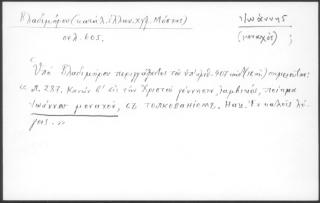 Βλαδιμήρου (κατάλ. ἑλλην. χγφ. Μόσχας)
σελ. 605.
Ἰωάννης
(μοναχός) ;
Ὑπὸ Βλαδιμήρου περιγράφεται τῶν ὑπ' ἀριθ. 407
"Л. 287. Κανὼν β' εἰς τὴν Χριστοῦ γέννησιν, ἰαμβικός, ποίημα
Ἰωάννου μοναχοῦ, съ толкованіемъ. Нач. Ἐν καλοῖς λό-
γοις...»